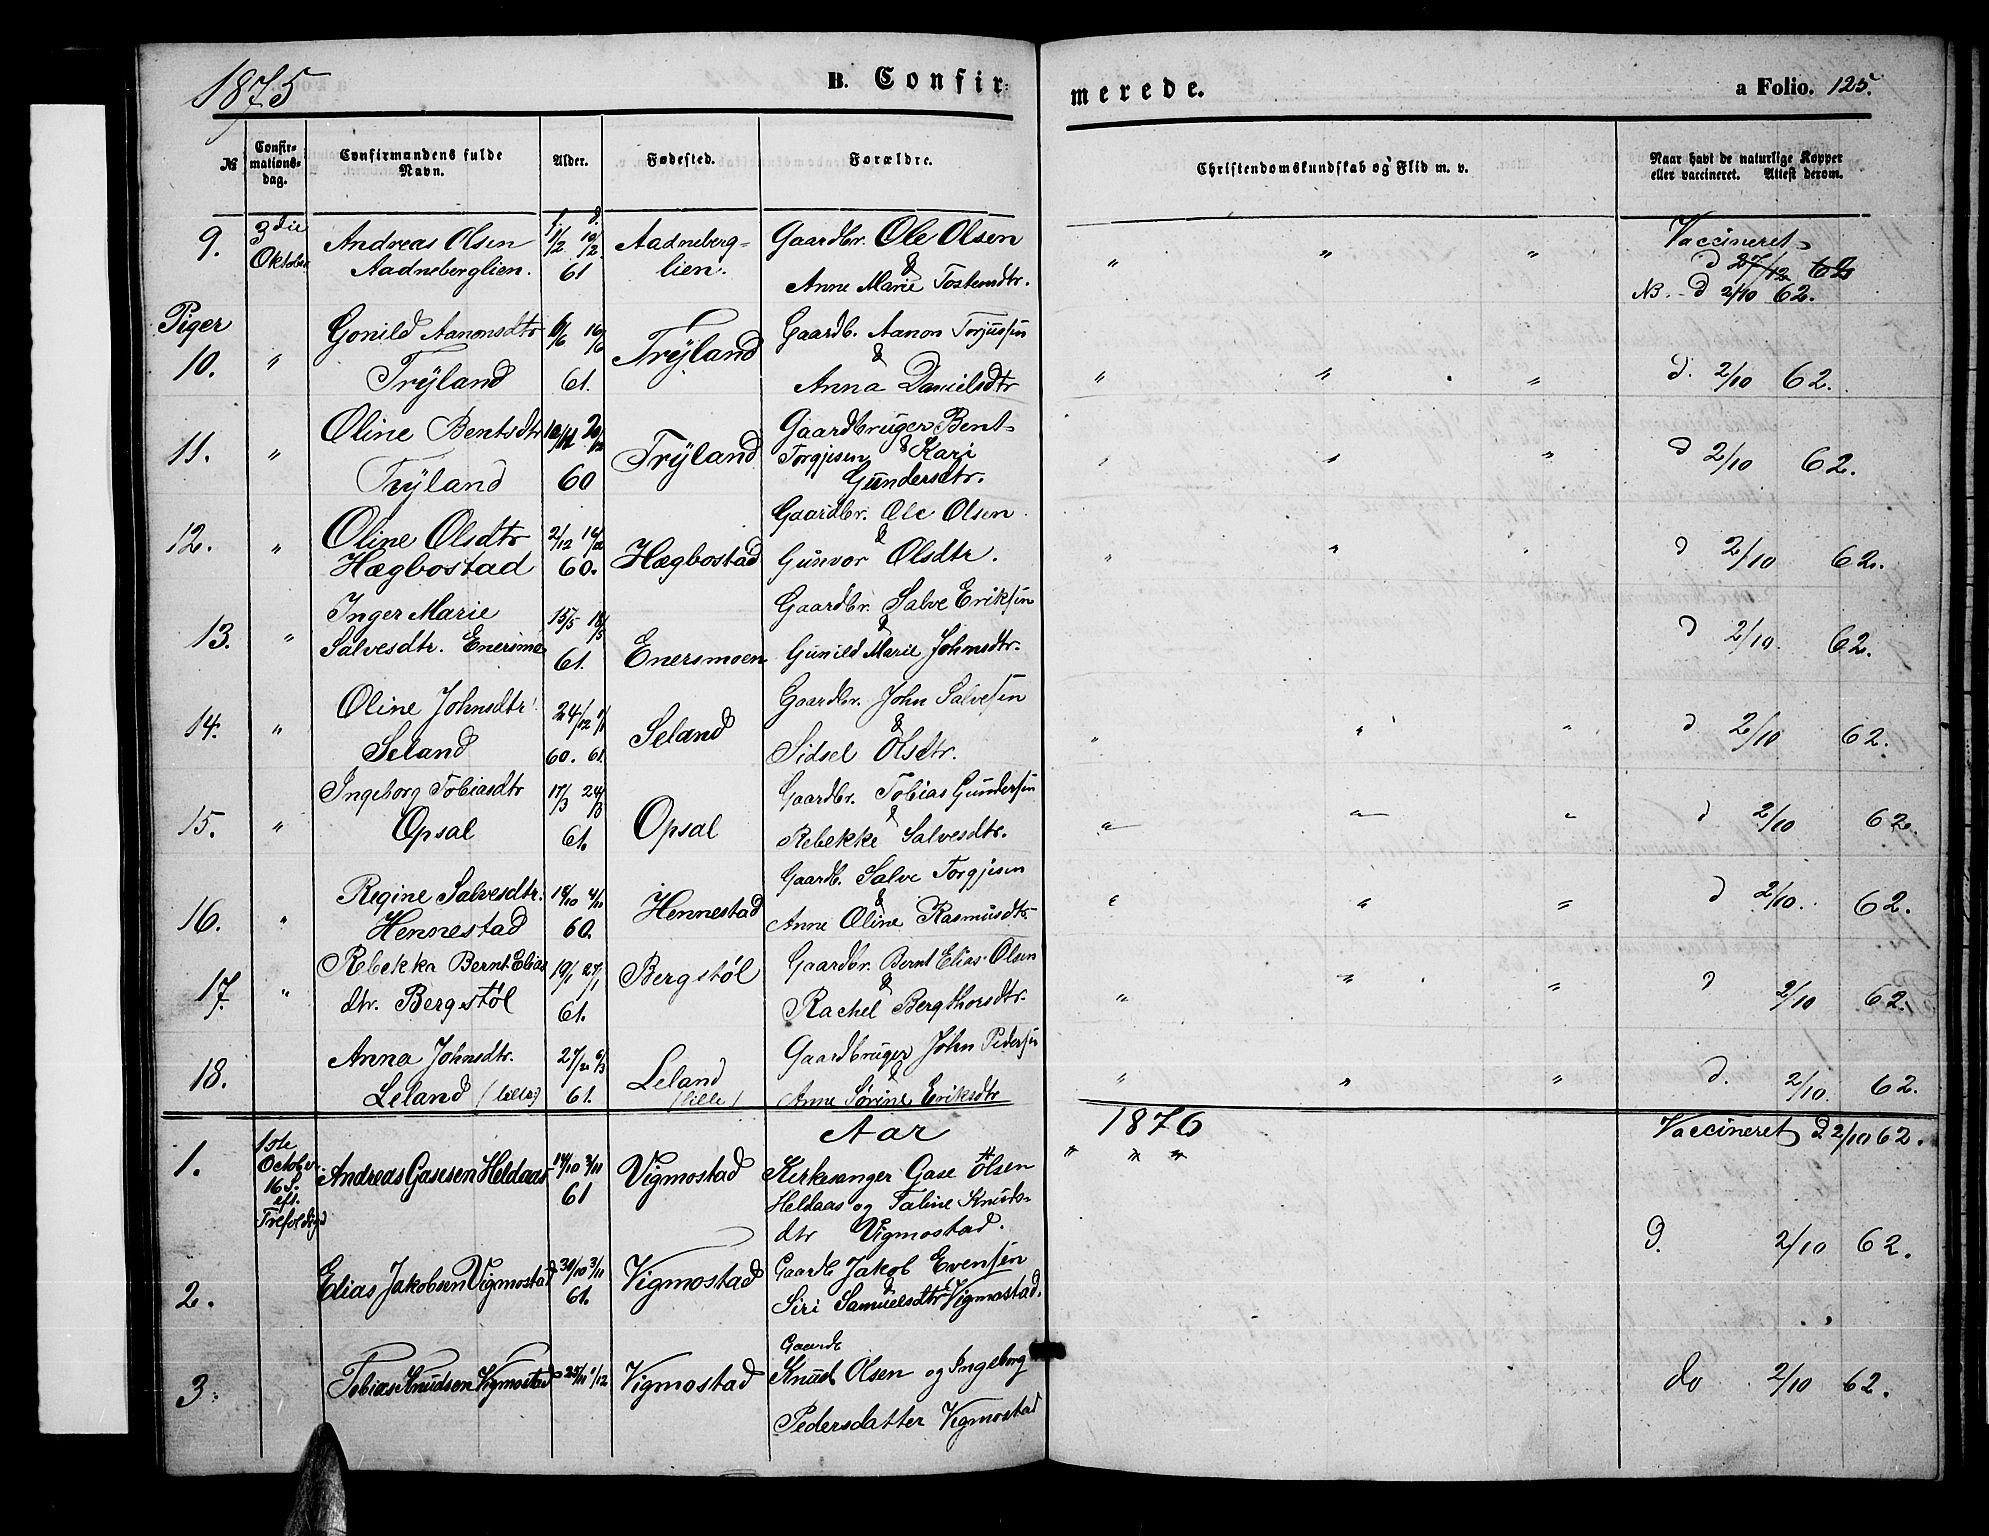 1875
B. Confirmerede.
a Folio. 125.
№
Confirmationsdag.
Confirmandens fulde Navn.
Alder.
Fødested.
Forældre.
Christendomskundskab og Flid m. v.
Naar havt de naturlige Kopper eller vaccineret. Attest derom.
9.
3die Oktober
Andreas Olsen
Aadneberglien.
61
Aadneberg-
lien.
Gaardbr. Ole Olsen
&
Anne Marie Tostensdtr.
Vaccineret
d 27/12 62
NB. - d 2/10 62.
Piger
10.
"
Gonild Aanonsdtr
Trÿland
6/6 16/6
61.
Trÿland
Gaardb. Aanon Torjussen
&
Anna Danielsdtr
d. 2/10 62.
11.
"
Oline Bentsdtr
Trÿland
60
Trÿland
Gaardbruger Bent
Torgjesen & Kari
Gundersdtr.
d 2/10 62.
12.
"
Oline Olsdtr
Hægbostad
2/12
60.
Hægbostad
Gaardbr. Ole Olsen
&
Gunvor Olsdtr.
d 2/10 62.
13.
"
Inger Marie
Salvesdtr. Enersmo
15/5 18/5
61.
Enersmoen
Gaardbr. Salve Eriksen
&
Gunild Marie Johnsdtr.
d 2/10. 62.
14.
"
Oline Johnsdtr
Seland
24/12 1/1
60. 61.
Seland
Gaardbr. John Salvesen
&
Sidsel Olsdtr.
d 2/10 62.
15.
"
Ingeborg Tobiasdtr
Opsal
17/3 24/3
61.
Opsal
Gaardbr. Tobias Gundersen
&
Rebekke Salvesdtr.
d 2/10 62.
16.
"
Regine Salvesdtr.
Hennestad
60.
Hennestad
Gaardb. Salve Torgjesen
&
Anne Oline Rasmusdtr.
d 2/10. 62.
17.
"
Rebekka Bernt Elias
dtr. Bergstøl
19/1 27/1
61.
Bergstøl
Gaardbr. Bernt Elias Olsen
&
Rachel Bergthorsdtr.
d 2/10 62.
18.
Anna Johnsdtr.
Leland (lille)
61.
Leland
(lille)
Gaardbruger John Pedersen
&
Anne Sørine Eriksdtr
d. 2/10. 62.
Aar 1876
1.
1ste
October
16 S.
eft.
Trefoldigd
Andreas Gasesen Heldaas
14/10 3/11
61
Vigmostad
Kirkesanger Gase Olsen
Heldaas og Taline Knuds-
dtr Vigmostad.
Vaccineret d 2/10 62.
2.
Elias Jakobsen Vigmostad
30/10 3/11
61.
Vigmostad
Gaardb Jakob Evensen
&
Siri Samuelsdtr Vigmostad.
d. 2/10 62.
3.
Tobias Knudsen Vigmostad
25/11 1/12
Vigmostad
Gaardb
Knud Olsen og Ingeborg
Pedersdatter Vigmostad
do 2/10 62.